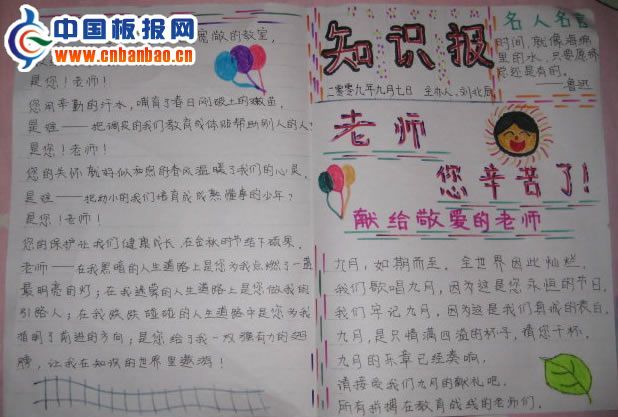 中国板报网
www.cnbanbao.cn
宽敞的教室,
是您!老师!
您用辛勤的汗水,哺育了春日刚破土的嫩苗,
是谁——把调皮的我们教育成体贴帮助别人的人
是您!老师!
您的关怀就好似和煦的春风温暖了我们的心灵,
是谁——把幼小的我们培育成成熟懂事的少年?
是您!老师!
您的保护让我们健康成长,在金秋时节结下硕果。
老师——在我黑暗的人生道路上是您为我点燃了一盏
最明亮的灯;在我迷蒙的人生道路上是您做我的
引路人;在我跌跌碰碰的人生道路中是您为我
指明了前进的方向;是您给了我一双强有力的翅
膀,让我在知识的世界里遨游!
知识报
二零零九年九月七日 主办人:
名人名言
时间,就像海绵
里的水,只要愿挤
总还是有的。
——鲁迅
老师
您辛苦了!
献给敬爱的老师
九月,如期而至。全世界因此灿烂。
我们歌唱九月,因为这是您永恒的节日。
我们牢记九月,因为这是我们真诚的表白。
九月,是只情满四溢的杯子,请您干杯。
九月的乐章已经奏响。
请接受我们九月的献礼吧。
所有拼搏在教育战线的老师们。